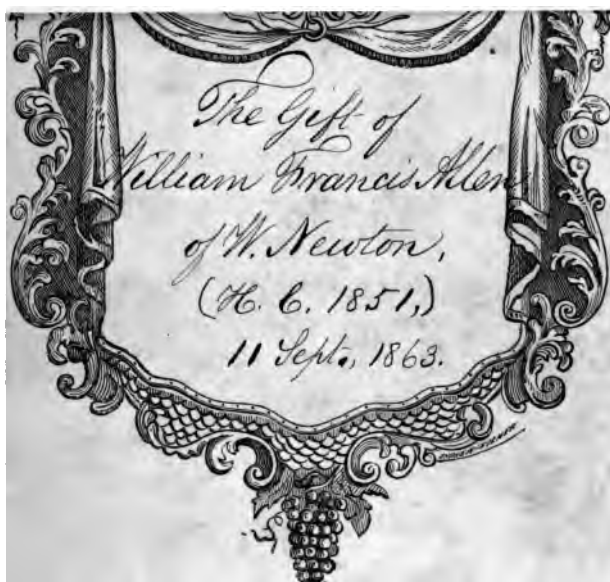 The Gift of
William Francis Allen
of W. Newton,
(H. C. 1851,)
11 Sept., 1863.